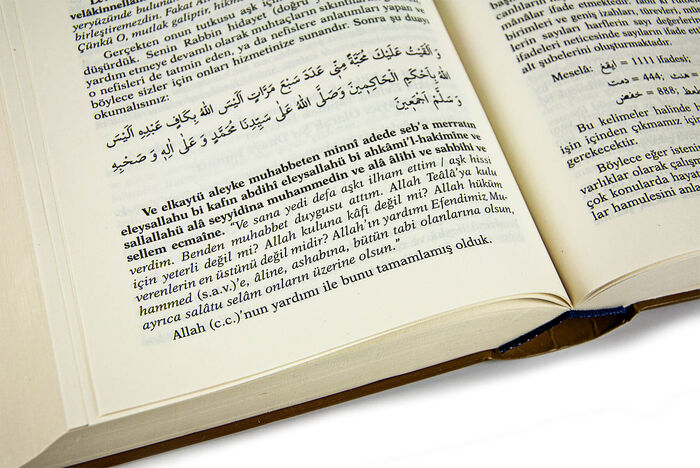 velâkinnellâ
yeryüzünde bulunan
birleştiremezdin. Fakat Al
Çünkü O, mutlak galiptir, hikm
Gerçekten onun tutkusu aşk
düşürdük. Senin Rabbin hidayet (doğru
yardım etmeye devamlı olarak muhtaçların sıkıntılarını
o nefisleri de tatmin eden, ya da nefislere anlatımları yapan
böylece sizler için onları hizmetinize sunandır. Sonra şu duayı
okumalısınız:
وَ اَلْقَيْتُ عَلَيْكَ مَحَبَّةً مِنِّي عَدَدَ سَبْعَ مَرَّاتٍ اَلَيْسَ اللهُ بِكَافٍ عَبْدِهِ اَلَيْسَ
اللهُ بِاَحْكَمِ الْحَاكِمِينَ وَصَلَّى اللهُ عَلَى سَيِّدِنَا مُحَمَّدٍ وَ عَلَى اٰلِهِ وَ صَحْبِهِ
وَ سَلَّمَ اَجْمَعِينَ
Ve elkaytü aleyke muhabbeten minnî adede seb'a merratın
eleysallahu bi kafin abdihî eleysallahu bi ahkâmi'l-hakimîne ve
sallallahü alâ seyyidina muhammedin ve alâ âlihî ve sahbihî ve
sellem ecmaîne. "Ve sana yedi defa aşkı ilham ettim / aşk hissi
verdim. Benden muhabbet duygusu attım. Allah Teâlâ'ya kulu
için yeterli değil mi? Allah kuluna kâfi değil mi? Allah hüküm
verenlerin en üstünü değil midir? Allah'ın yardımı Efendimiz Mu-
hammed (s.a.v.)'e, âline, ashabına, bütün tabi olanlarına olsun,
ayrıca salâtu selâm onların üzerine olsun."
Allah (c.c.)'nun yardımı ile bunu tamamlamış olduk.
mânâlar ifade
birimleri ve geniş izahları,
lerin sayıları bunların değer
ifadeleri neticesinde sayıların İfade
alt şubelerini oluşturmaktadır.
Meselâ: ايقغ = 1111 ifadesi:
دمت = 444;
خفض = 888;
Bu kelimeler halinde
işin içinden çıkmamız için
gerekecektir.
Böylece eğer istenir
varlıklar olarak çalışı
çok konularda hayat
lar hamulesini an